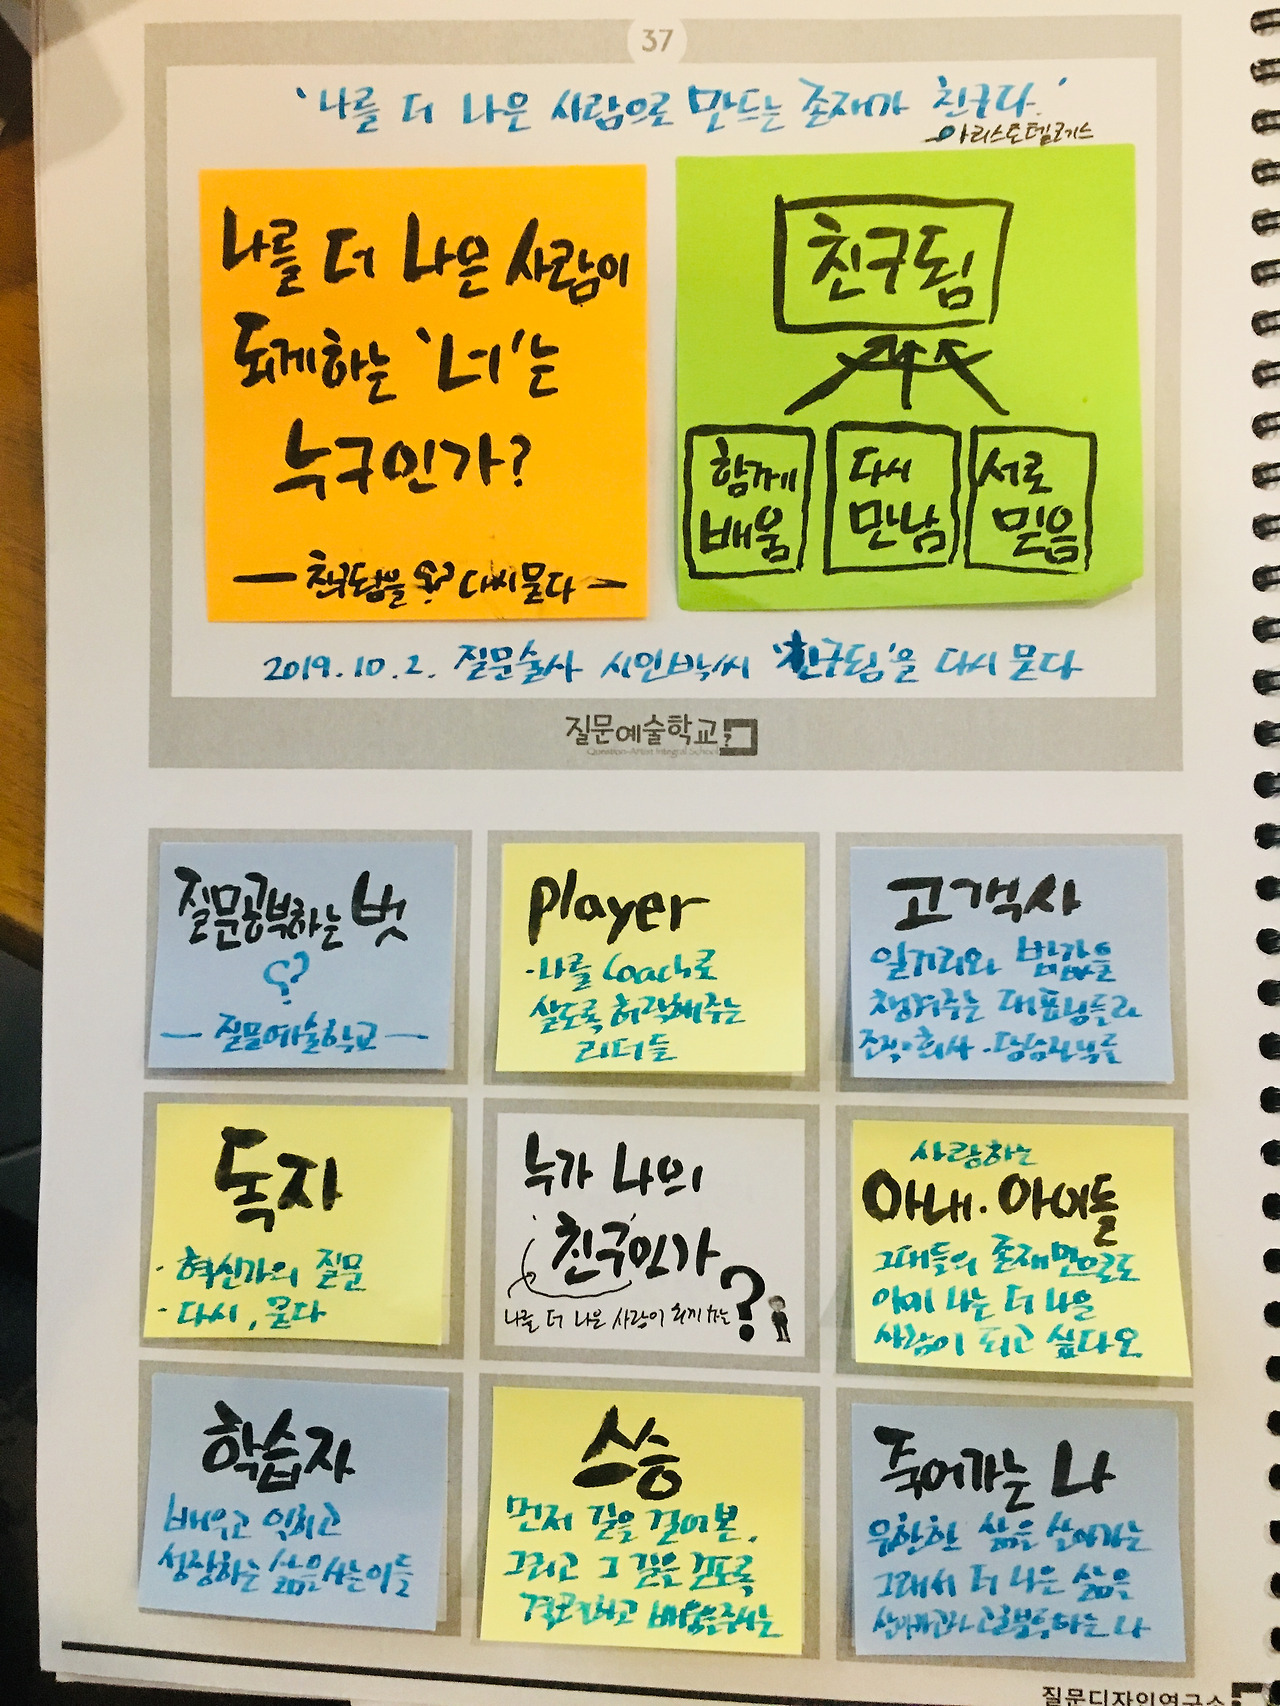 37
'나를 더 나은 사람으로 만드는 존재가 친구다.'
아리스토텔레스
나를 더 나은 사람이
되게하는 '너'는
누구인가?
친구됨을 다시 묻다
친구됨
함께
배움
다시
만남
서로
믿음
2019.10.2. 질문술사 시인박씨 '친구됨'을 다시 묻다
질문예술학교
Question-Artist Integral School
질문공부하는 벗
질문예술학교
Player
·나를 Coach로
살도록 허락해주는
리더들
고객사
일거리와 밥값을
챙겨주는 대표님들과
조직·회사·담당자분들
독자
· 혁신가의 질문
· 다시, 묻다
누가 나의
친구인가?
나를 더 나은 사람이 되게 하는
사랑하는
아내·아이들
그대들의 존재만으로도
이미 나는 더 나은
사람이 되고 싶다오
학습자
배우고 익히고
성장하는 삶을 사는 이들
스승
먼저 길을 걸어본,
그리고 그 길을 걷도록
격려하고 배움을 주시는
죽어가는 나
유한한 삶을 살아가는
그래서 더 나은 삶을
고군분투하는 나
질문디자인연구소